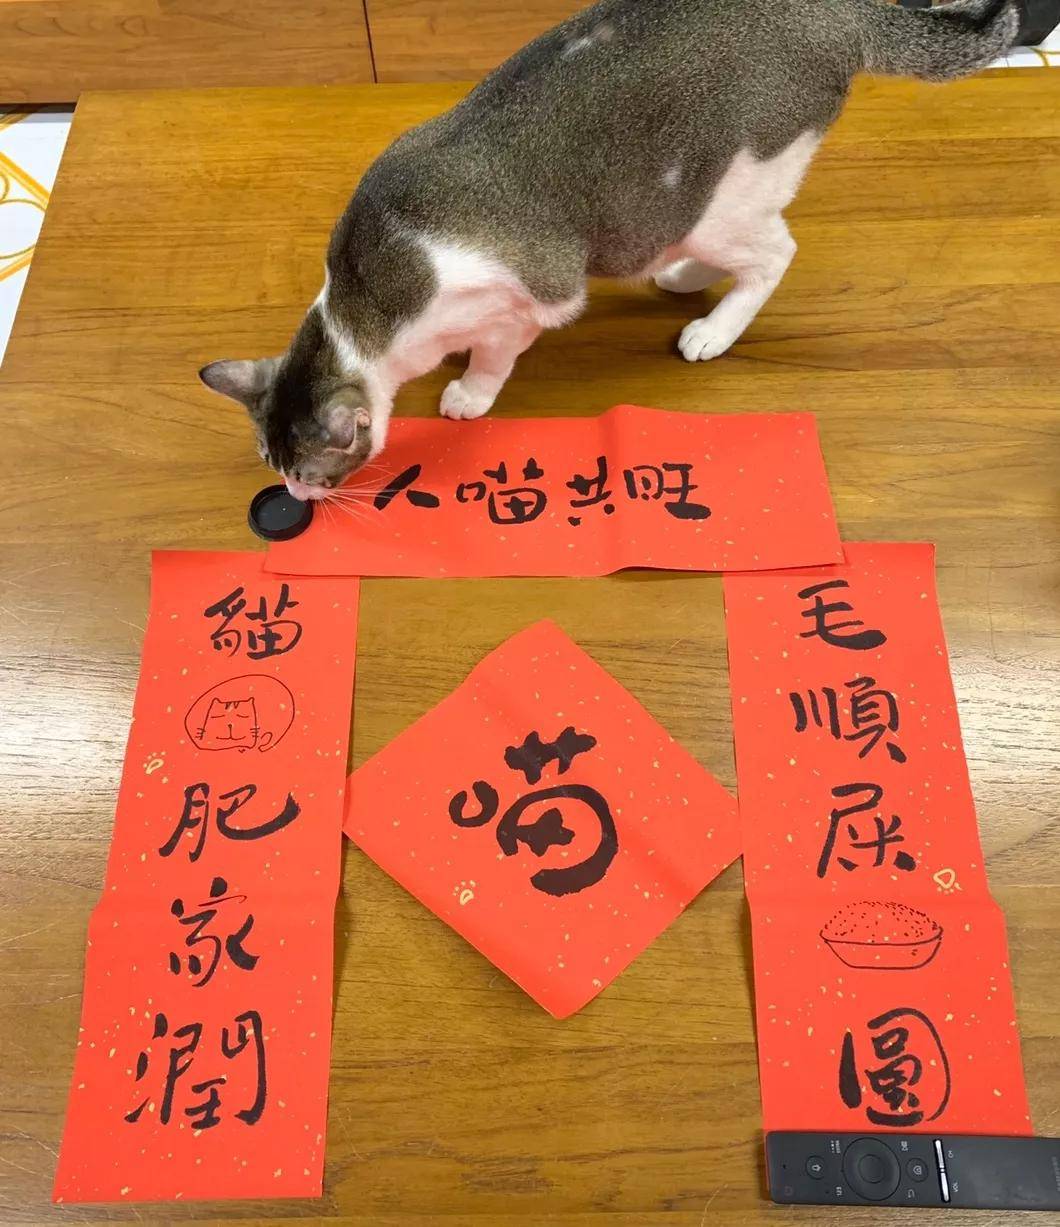 人喵共旺
毛順屎圓
貓肥家潤
喵
123
VOL
CH